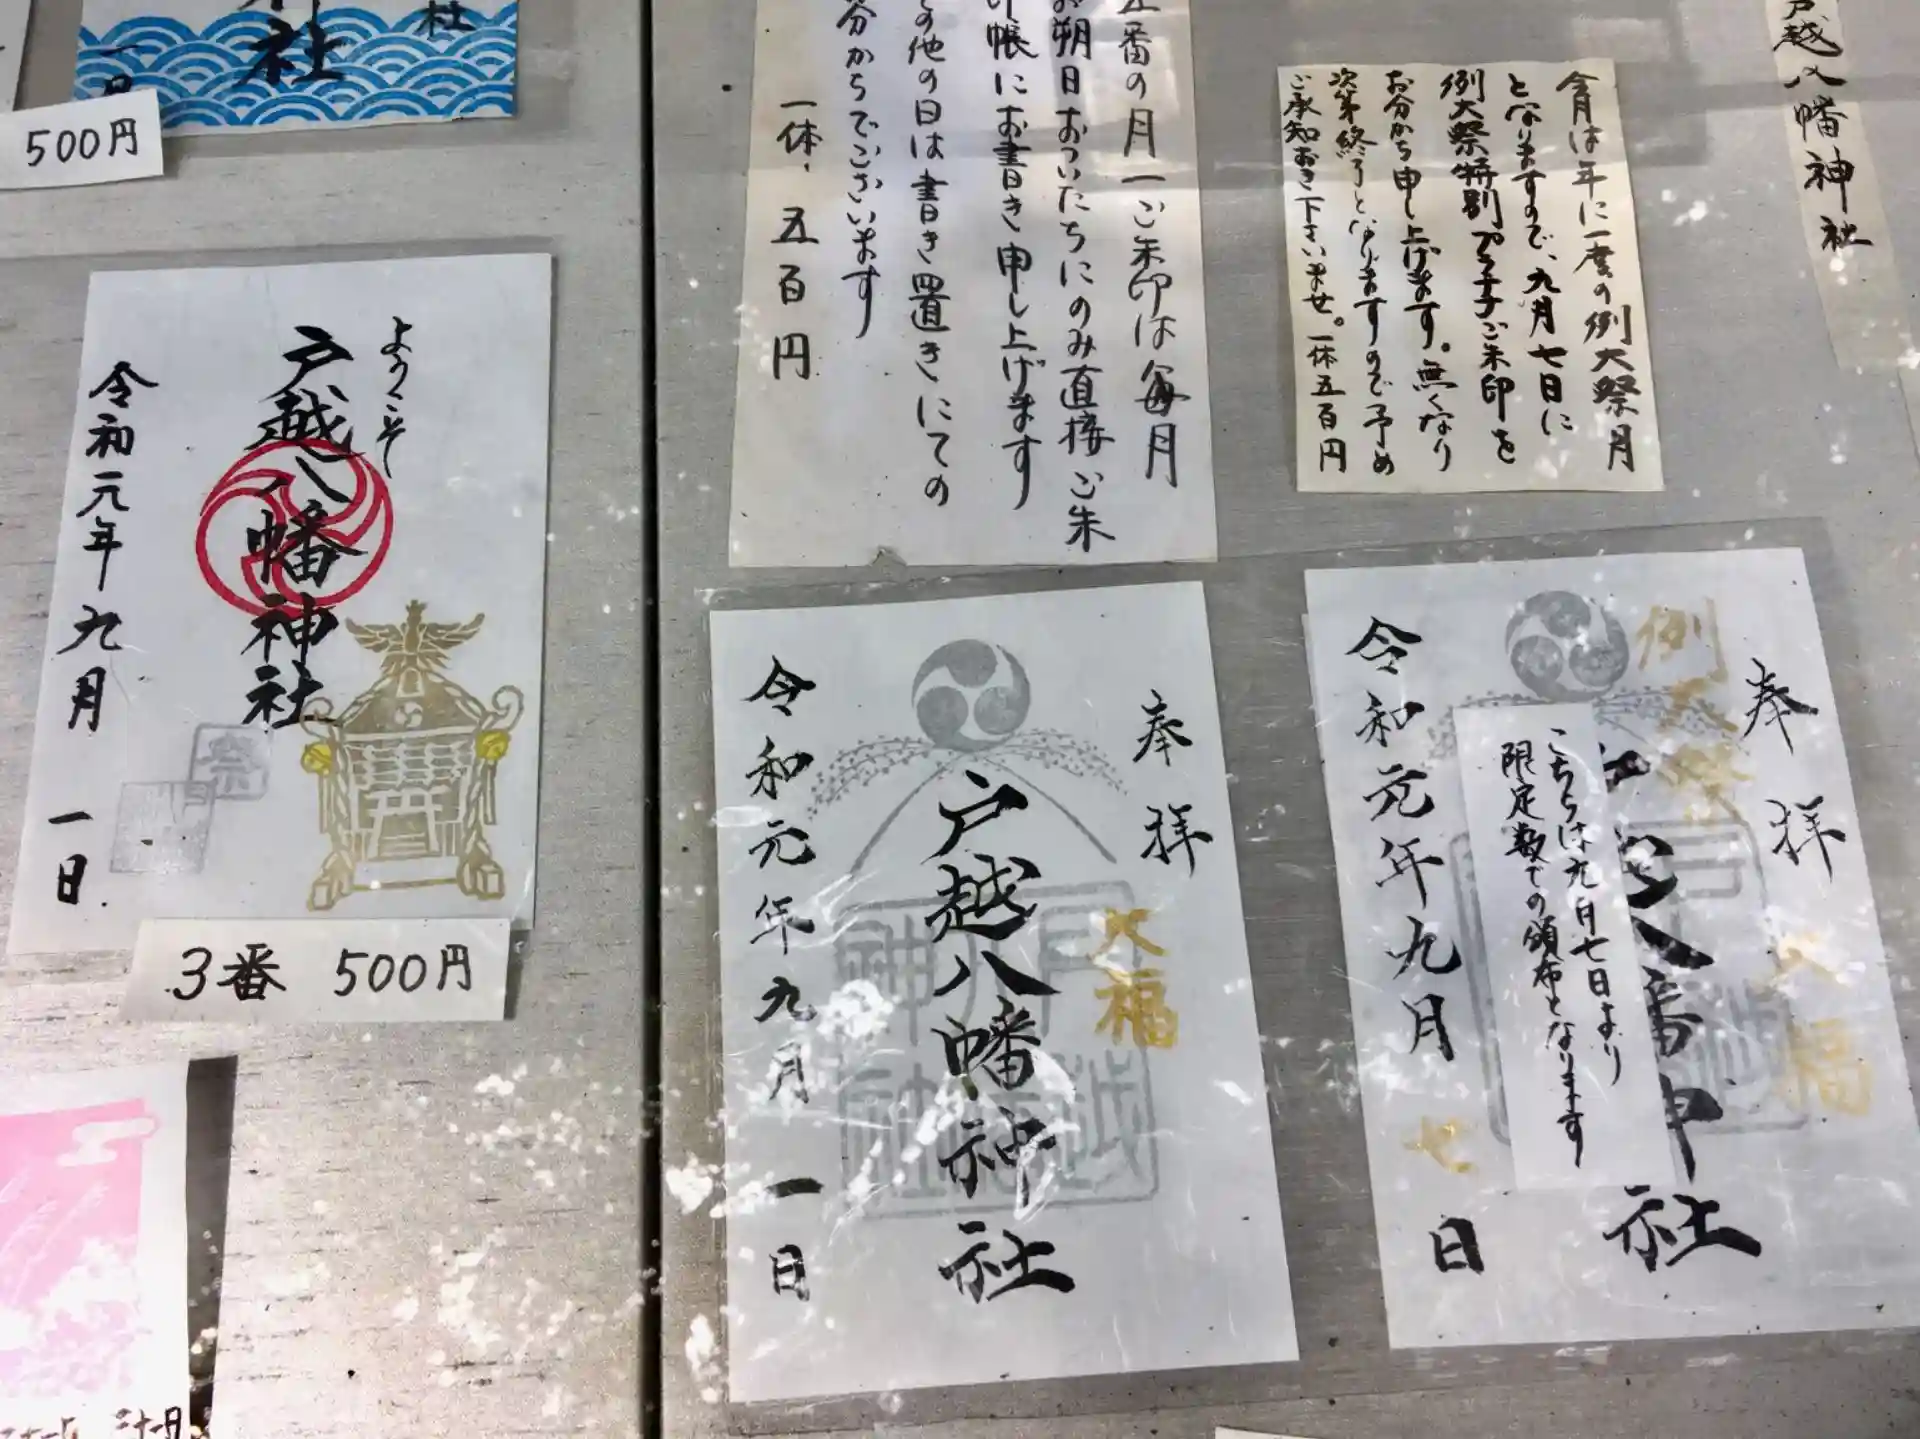 社
日
500円
ようこそ
戸越八幡神社
令和元年九月一日
祭
3番 500円
五番の月一ご朱印は毎月
お朔日おついたちにのみ直接ご朱
印帳にお書き申し上げます
その他の日は書き置きにての
お分かちでございます
一体、五百円
今月は年に一度の例大祭月
となりますので、九月七日に
例大祭特別プラチナご朱印を
お分かち申し上げます。無くなり
次第終了となりますので予め
ご承知おき下さいませ。一体五百円
戸越八幡神社
奉拝
大福
戸越八幡神社
令和元年九月一日
奉拝
例大祭
大福
こちらは九月七日より
限定数での頒布となります
令和元年九月七日